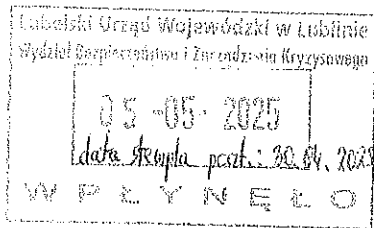 Lubelski Urząd Wojewódzki w Lublinie
Wydział Bezpieczeństwa i Zarządzania Kryzysowego
05 -05- 2025
data stempla poczt.: 30.04.2025
WPŁYNĘŁO